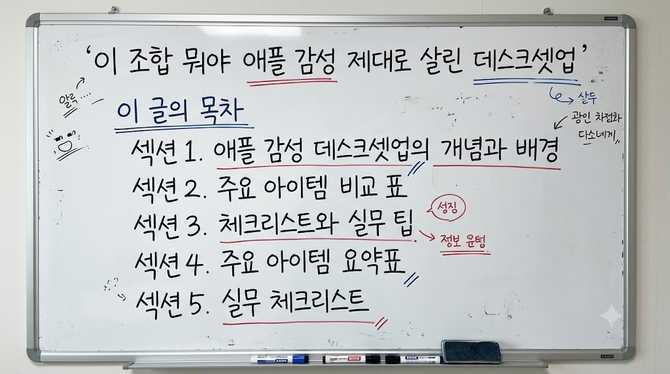 '이 조합 뭐야 애플 감성 제대로 살린 데스크셋업'
이 글의 목차
섹션 1. 애플 감성 데스크셋업의 개념과 배경
섹션 2. 주요 아이템 비교 표
섹션 3. 체크리스트와 실무 팁
성징
정보 윤텅
섹션 4. 주요 아이템 요약표
섹션 5. 실무 체크리스트